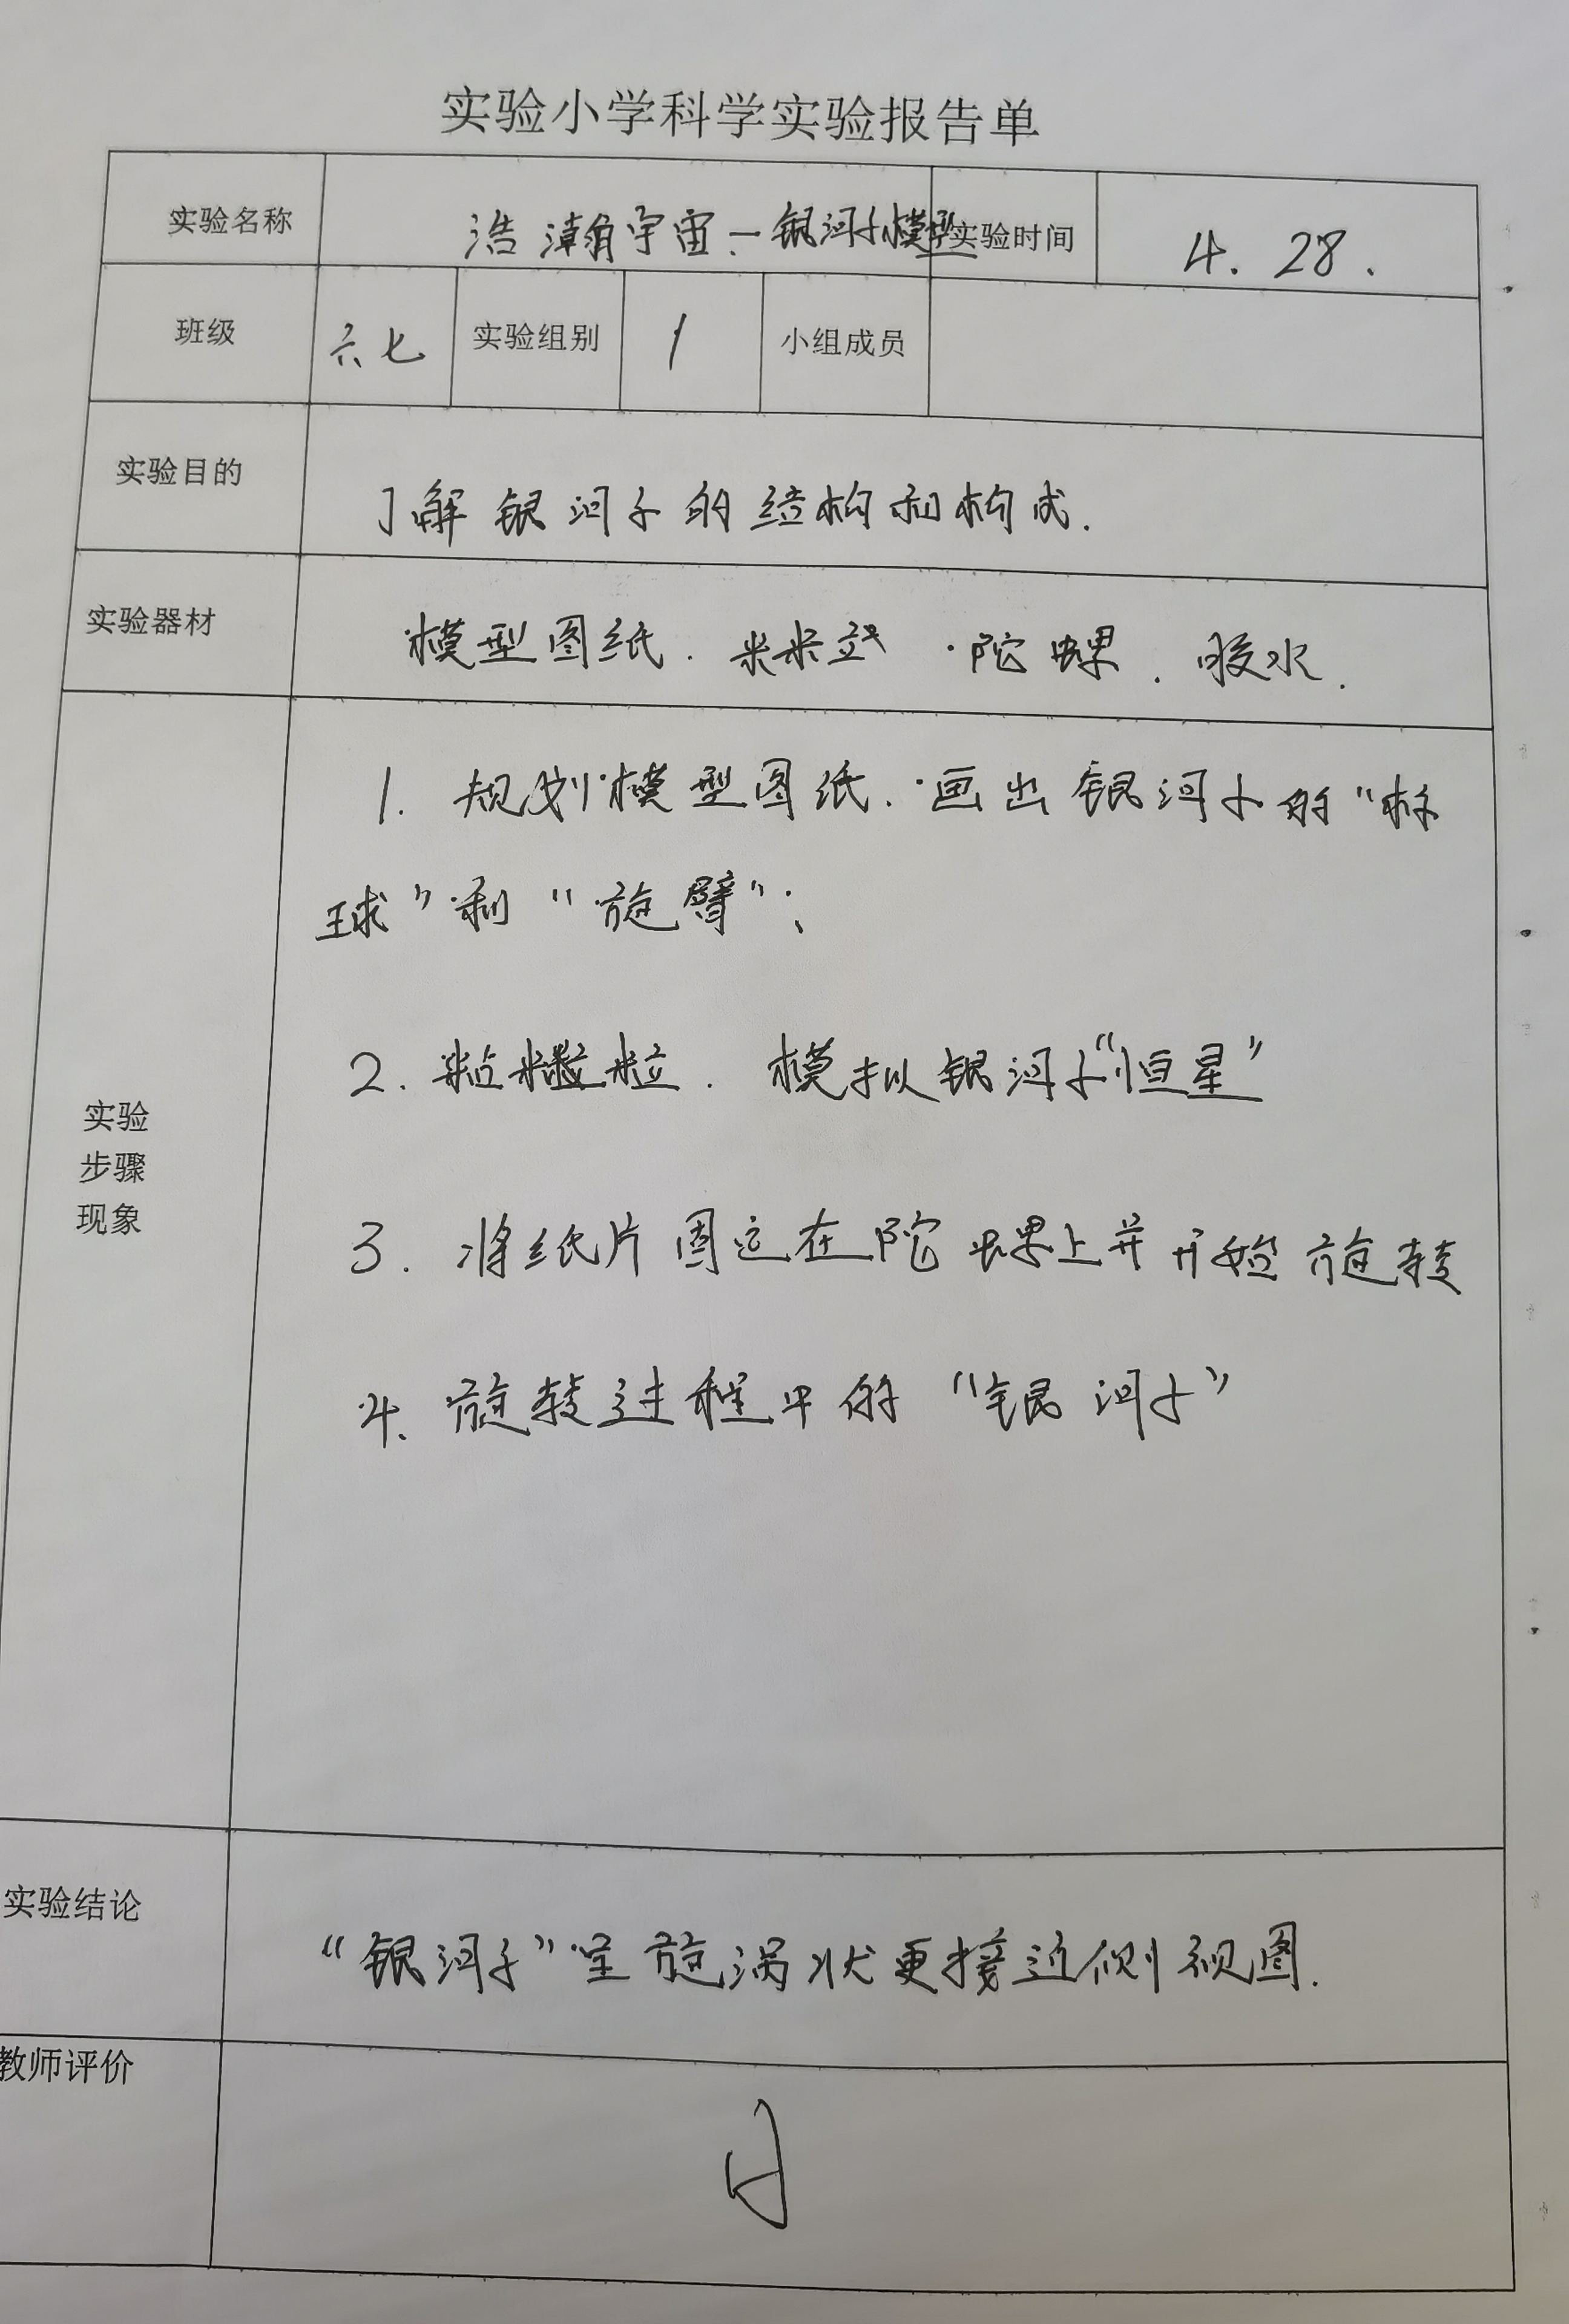 实验小学科学实验报告单
实验名称 浩瀚宇宙—银河系模型 实验时间 4.28.
班级 六七 实验组别 1 小组成员
实验目的 了解银河系的结构和构成.
实验器材 模型图纸. 米粒 陀螺. 胶水.
1. 规划模型图纸. 画出银河系的“核
球”和“旋臂”;
2. 粘米粒. 模拟银河系“恒星”
实验
步骤
现象
3. 将纸片固定在陀螺上并开始旋转
4. 旋转过程中的“银河系”
实验结论 “银河系”呈旋涡状更接近侧视图.
教师评价